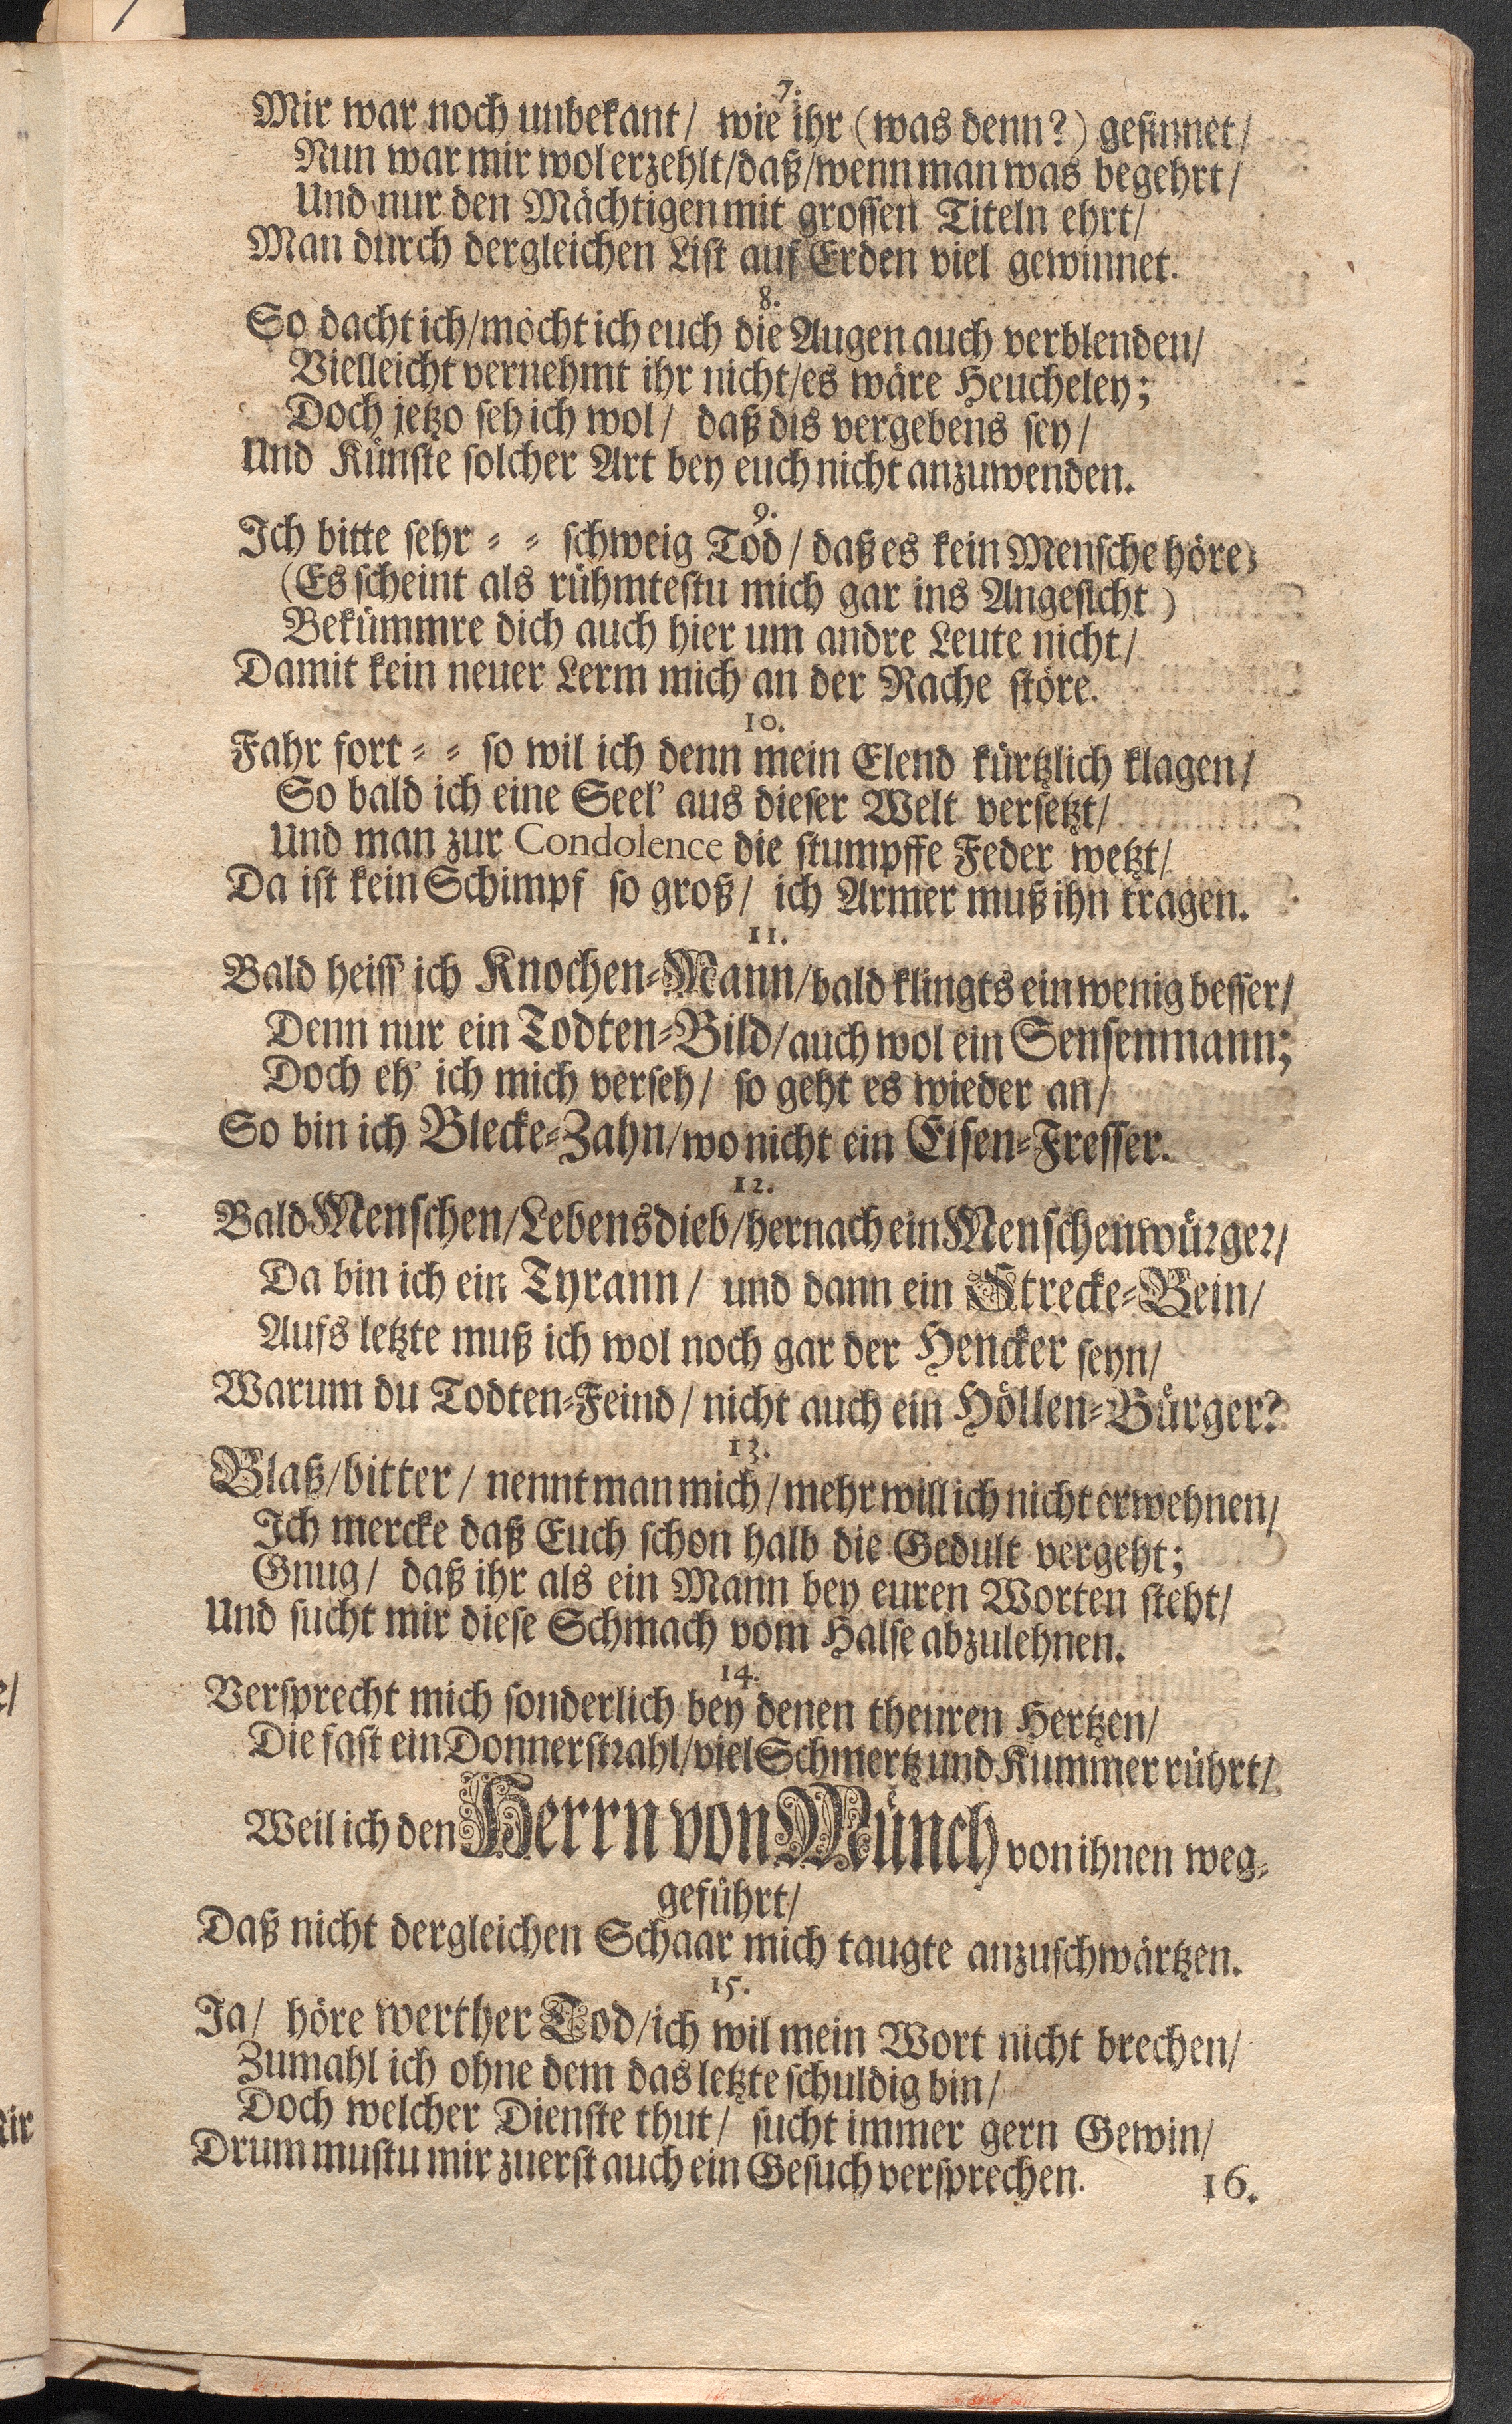 7.
Mir war noch unbekant/ wie ihr (was denn?) gesinnet/
Nun war mir wol erzehlt/daß/wenn man was begehrt/
Und nur den Mächtigen mit grossen Titeln ehrt/
Man durch dergleichen List auf Erden viel gewinnet.
8.
So dacht ich/möcht ich euch die Augen auch verblenden/
Vielleicht vernehmt ihr nicht/es wäre Heucheley;
Doch jetzo seh ich wol/ daß dis vergebens sey/
Und Künste solcher Art bey euch nicht anzuwenden.
9.
Ich bitte sehr = = schweig Tod/ daß es kein Mensche höre;
(Es scheint als rühmtestu mich gar ins Angesicht)
Bekümmre dich auch hier um andre Leute nicht/
Damit kein neuer Lerm mich an der Rache störe.
10.
Fahr fort = = so wil ich denn mein Elend kürtzlich klagen/
So bald ich eine Seel' aus dieser Welt versetzt/
Und man zur Condolence die stumpffe Feder wetzt/
Da ist kein Schimpf so groß/ ich Armer muß ihn tragen.
11.
Bald heiss' ich Knochen=Mann/bald klingts ein wenig besser/
Denn nur ein Todten=Bild/auch wol ein Sensenmann;
Doch eh' ich mich verseh/ so geht es wieder an/
So bin ich Blecke=Zahn/wo nicht ein Eisen=Fresser.
12.
Bald Menschen/Lebensdieb/hernach ein Menschenwürger/
Da bin ich ein Tyrann/ und dann ein Strecke=Bein/
Aufs letzte muß ich wol noch gar der Hencker seyn/
Warum du Todten=Feind/ nicht auch ein Höllen=Bürger?
13.
Blaß/bitter/ nennt man mich/mehr will ich nicht erwehnen/
Ich mercke daß Euch schon halb die Gedult vergeht;
Gnug/ daß ihr als ein Mann bey euren Worten steht/
Und sucht mir diese Schmach vom Halse abzulehnen.
14.
Versprecht mich sonderlich bey denen theuren Hertzen/
Die fast ein Donnerstrahl/viel Schmertz und Kummer rührt/
Weil ich den Herrn von Münch von ihnen weg=
geführt/
Daß nicht dergleichen Schaar mich taugte anzuschwärtzen.
15.
Ja/ höre werther Tod/ich wil mein Wort nicht brechen/
Zumahl ich ohne dem das letzte schuldig bin/
Doch welcher Dienste thut/ sucht immer gern Gewin/
Drum mustu mir zuerst auch ein Gesuch versprechen.
16.